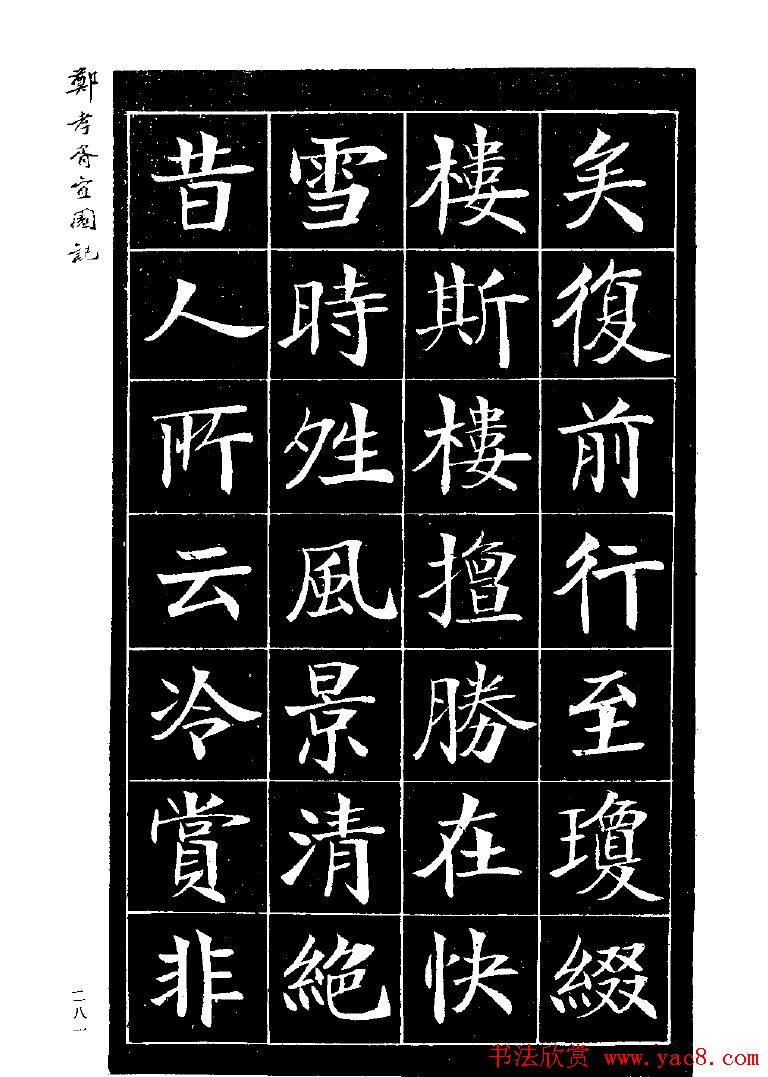 矣復前行至瓊綴
樓斯樓擅勝在快
雪時夝風景清絕
昔人所云冷賞非
鄭孝胥宜園記
二八一
书法欣赏 www.yac8.com